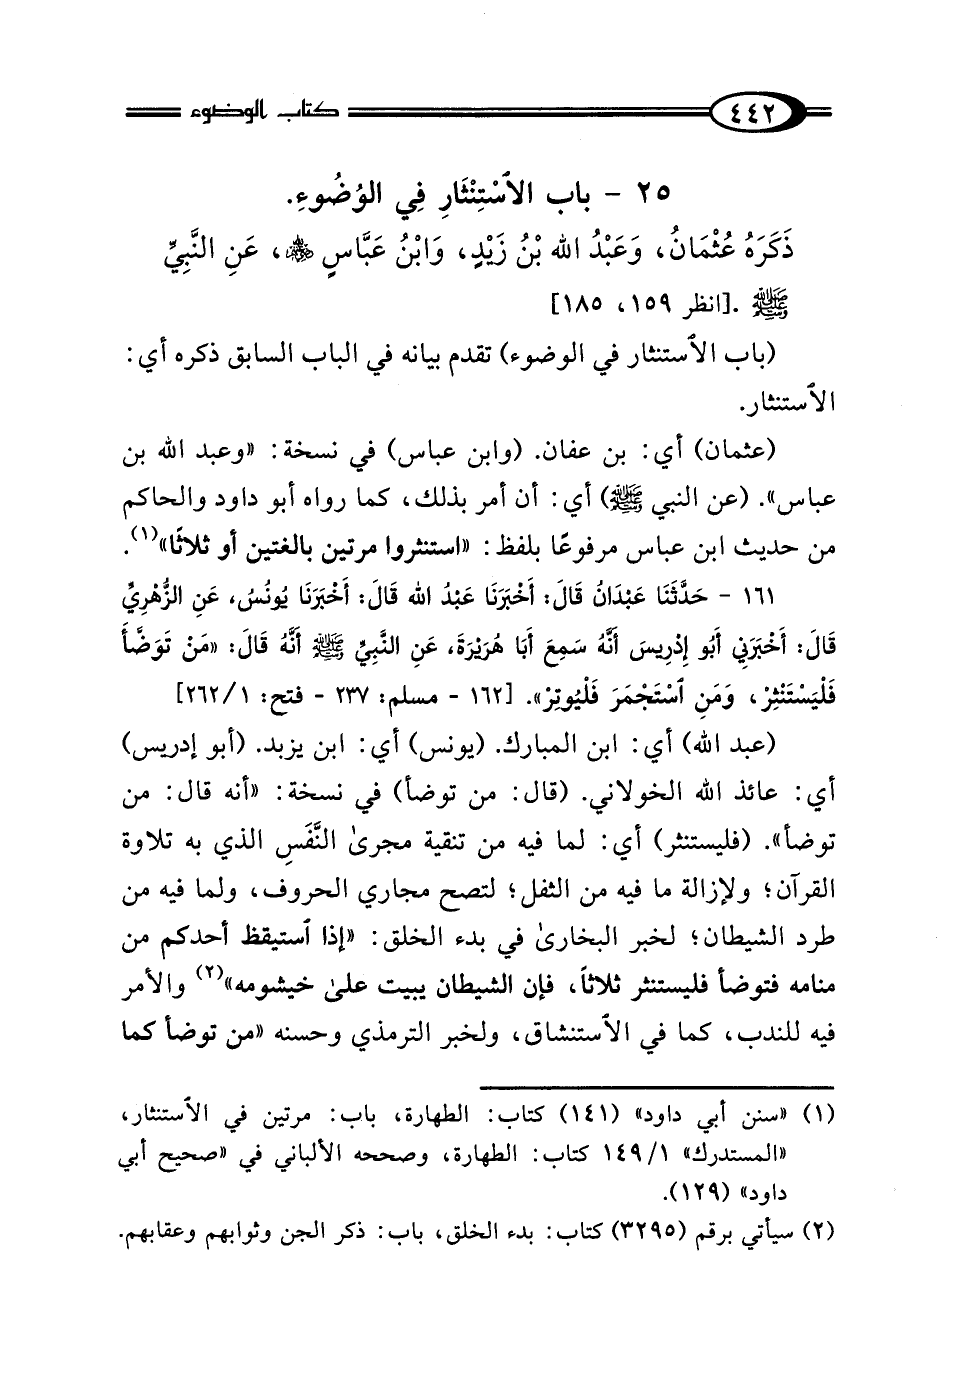 ٤٤٢ كتاب الوضوء
٢٥ - باب الاسْتِنْثَارِ فِي الوُضُوءِ.
ذَكَرَهُ عُثْمَانُ، وَعَبْدُ الله بْنُ زَيْدٍ، وَابْنُ عَبَّاسٍ ﵃، عَنِ النَّبِيِّ
ﷺ .[انظر ١٥٩، ١٨٥]
(باب الاستنثار في الوضوء) تقدم بيانه في الباب السابق ذكره أي:
الاستنثار.
(عثمان) أي: بن عفان. (وابن عباس) في نسخة: «وعبد الله بن
عباس». (عن النبي ﷺ) أي: أن أمر بذلك، كما رواه أبو داود والحاكم
من حديث ابن عباس مرفوعًا بلفظ: «استنثروا مرتين بالغتين أو ثلاثًا»(١).
١٦١ - حَدَّثَنَا عَبْدَانُ قَالَ: أَخْبَرَنَا عَبْدُ الله قَالَ: أَخْبَرَنَا يُونُسُ، عَنِ الزُّهْرِيِّ
قَالَ: أَخْبَرَنِي أَبُو إِدْرِيسَ أَنَّهُ سَمِعَ أَبَا هُرَيْرَةَ، عَنِ النَّبِيِّ ﷺ أَنَّهُ قَالَ: «مَنْ تَوَضَّأَ
فَلْيَسْتَنْثِرْ، وَمَنِ ٱسْتَجْمَرَ فَلْيُوتِرْ». [١٦٢ - مسلم: ٢٣٧ - فتح: ١/٢٦٢]
(عبد الله) أي: ابن المبارك. (يونس) أي: ابن يزبد. (أبو إدريس)
أي: عائذ الله الخولاني. (قال: من توضأ) في نسخة: «أنه قال: من
توضأ». (فليستنثر) أي: لما فيه من تنقية مجرىٰ النَّفَسِ الذي به تلاوة
القرآن؛ ولإزالة ما فيه من الثفل؛ لتصح مجاري الحروف، ولما فيه من
طرد الشيطان؛ لخبر البخارىٰ في بدء الخلق: «إذا ٱستيقظ أحدكم من
منامه فتوضأ فليستنثر ثلاثاً، فإن الشيطان يبيت علىٰ خيشومه»(٢) والأمر
فيه للندب، كما في الاستنشاق، ولخبر الترمذي وحسنه «من توضأ كما
(١) «سنن أبي داود» (١٤١) كتاب: الطهارة، باب: مرتين في الاستنثار،
«المستدرك» ١/١٤٩ كتاب: الطهارة، وصححه الألباني في «صحيح أبي
داود» (١٢٩).
(٢) سيأتي برقم (٣٢٩٥) كتاب: بدء الخلق، باب: ذكر الجن وثوابهم وعقابهم.